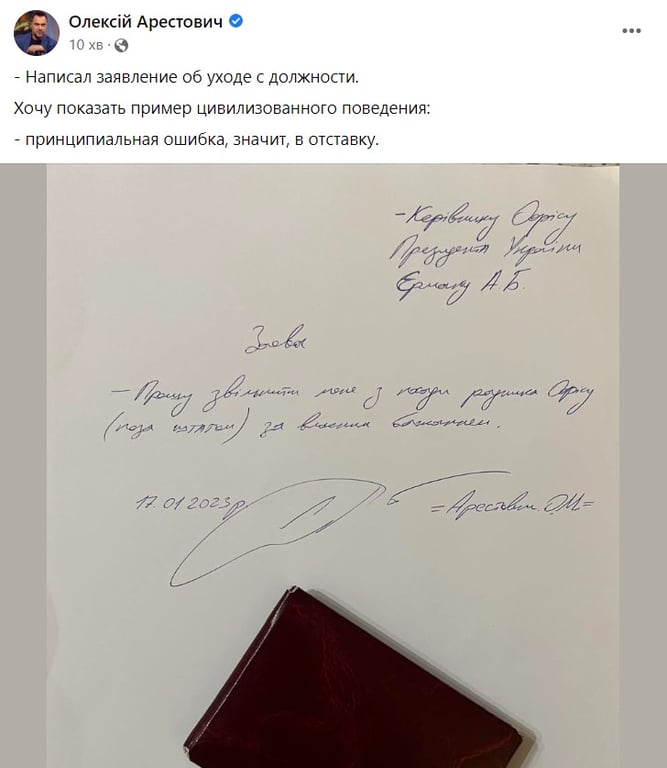 Олексій Арестович
10 хв ·
- Написал заявление об уходе с должности.
Хочу показать пример цивилизованного поведения:
- принципиальная ошибка, значит, в отставку.
- Керівнику Офісу
Президента України
Єрмаку А.Б.
Заява
- Прошу звільнити мене з посади радника Офісу
(поза штатом) за власним бажанням.
17.01.2023р
=Арестович О.М=